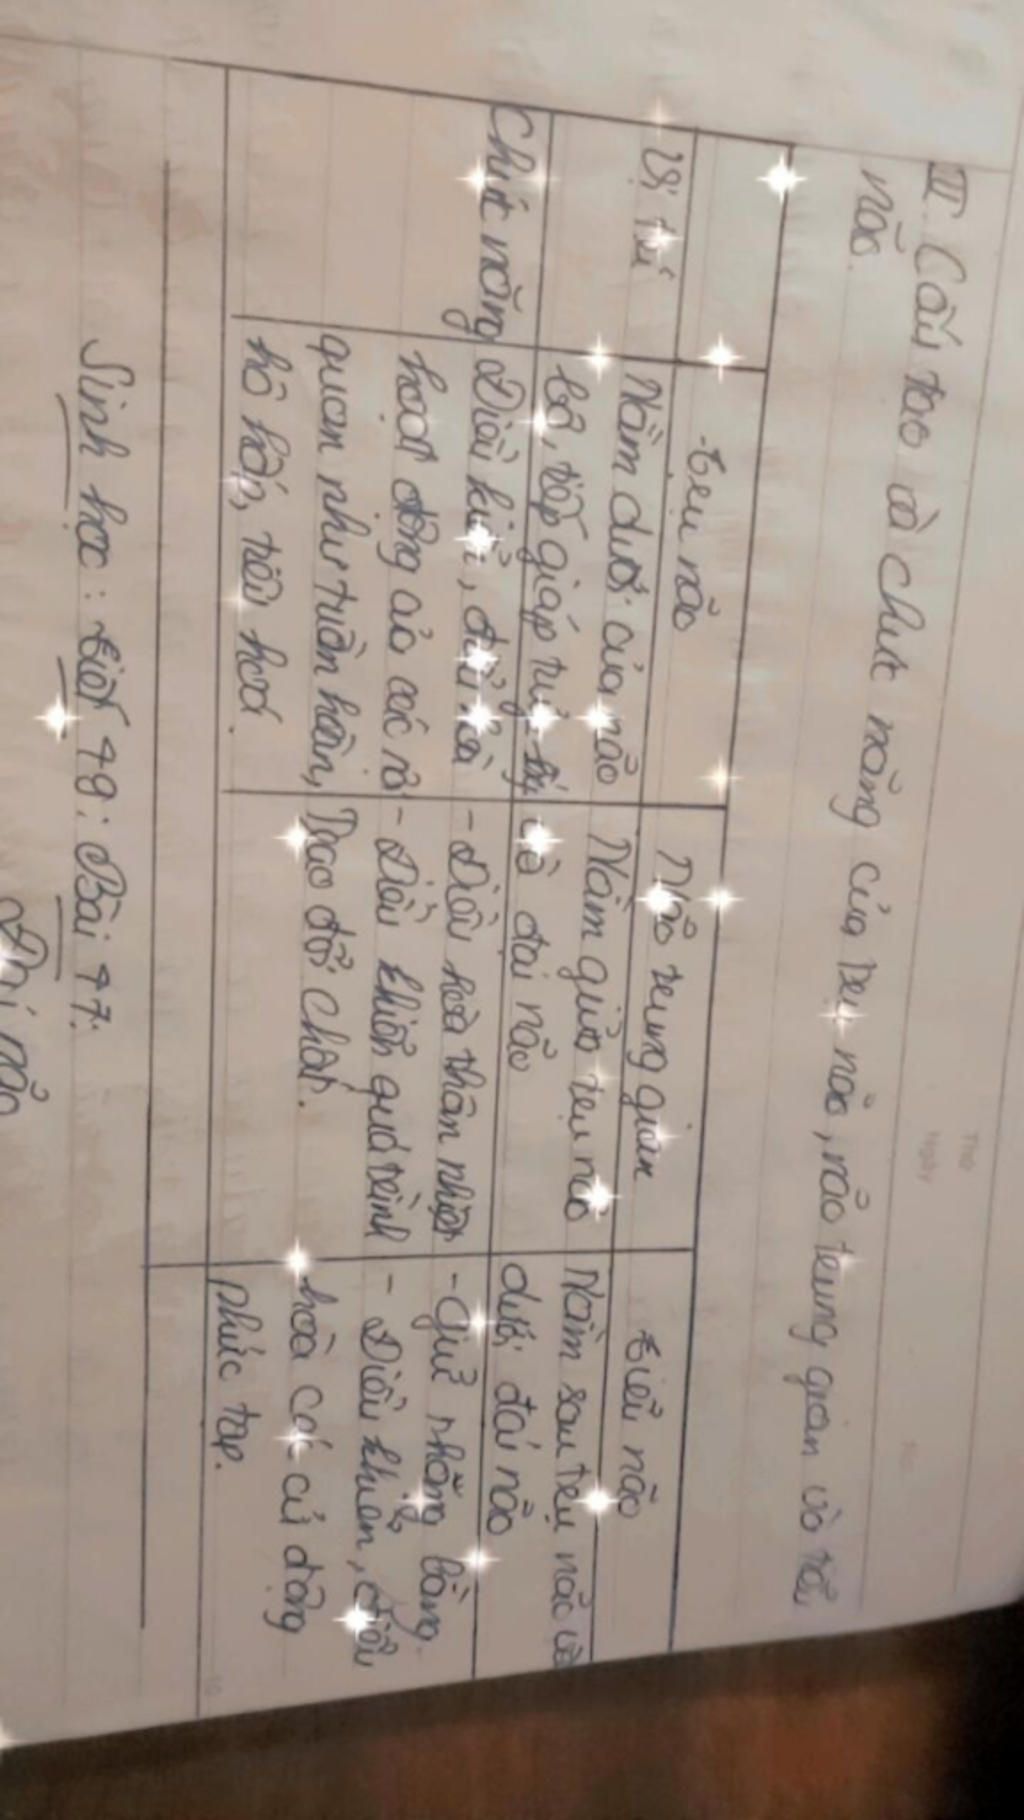 III Cấu tạo và chức năng của trụ não, não trung gian và tiểu
não.
trụ não
Não trung gian
tiểu não
Vị trí
Nằm dưới của não
bộ, tiếp giáp tuỷ
Nằm giữa trụ não
và đại não
Nằm sau trụ não và
dưới đại não
Chức năng
Điều khiển, điều hoà
hoạt động của các cơ
quan như tuần hoàn,
hô hấp, tiêu hoá.
- Điều hoà thân nhiệt
- Điều khiển quá trình
Trao đổi chất.
- Giữ thăng bằng.
- Điều khiển, điều
hoà các cử động
phức tạp.
Sinh học: tiết 48: Bài 47:
Đại não